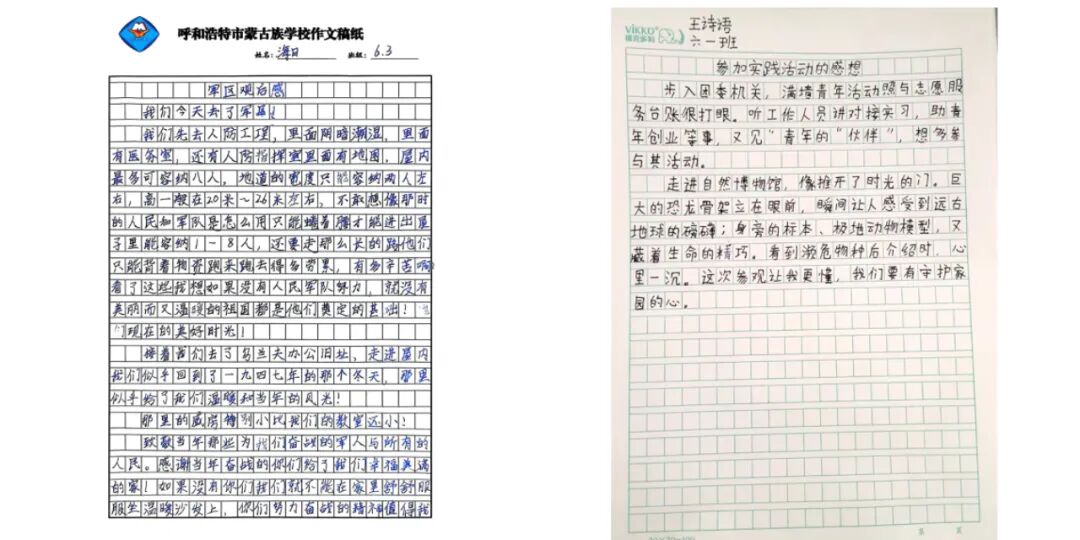 呼和浩特市蒙古族学校作文稿纸
姓名：海日 班级：6.3
军区观后感
我们今天去了军区！
我们先去人防工程，里面阴暗潮湿，里面
有医务室，还有人防指挥室里面有地图，屋内
最多可容纳八人。地道的宽度只能容纳两人左
右，高一般在20米～26米左右，不敢想像那时
的人民和军队是怎么用只能墙着腰才能进出屋
子里能容纳1－8人，还要走那么长的路他们
只能背着物资跑来跑去得多劳累，有多辛苦啊
看了这些我想如果没有人民军队努力，就没有
美丽而又温暖的祖国都是他们奠定的基础！
们现在的美好时光！
接着我们去了乌兰夫办公旧址、走进屋内
我们似乎回到了一九四七年的那个冬天，那里
似乎给了我们温暖和当年的风光！
那里的房特别小比我们的教室还小！
致敬当年那些为我们奋战的军人与所有的
人民。感谢当年奋战的你们给了我们幸福美满
的家！如果没有你们我们就不能在家里舒舒服
服坐温暖沙发上，你们努力奋战的精神值得我
VIKKO
维克多利
王诗语
六一班
参加实践活动的感想
步入团委机关，满墙青年活动照与志愿服
务台账很打眼。听工作人员讲对接实习，助青
年创业等事，又见“青年的“伙伴”，想多参
与其活动。
走进自然博物馆，像推开了时光的门。巨
大的恐龙骨架立在眼前，瞬间让人感受到远古
地球的磅礴；身旁的标本、极地动物模型，又
藏着生命的精巧。看到濒危物种后介绍时，心
里一沉。这次参观让我更懂，我们要有守护家
园的心。
第 页